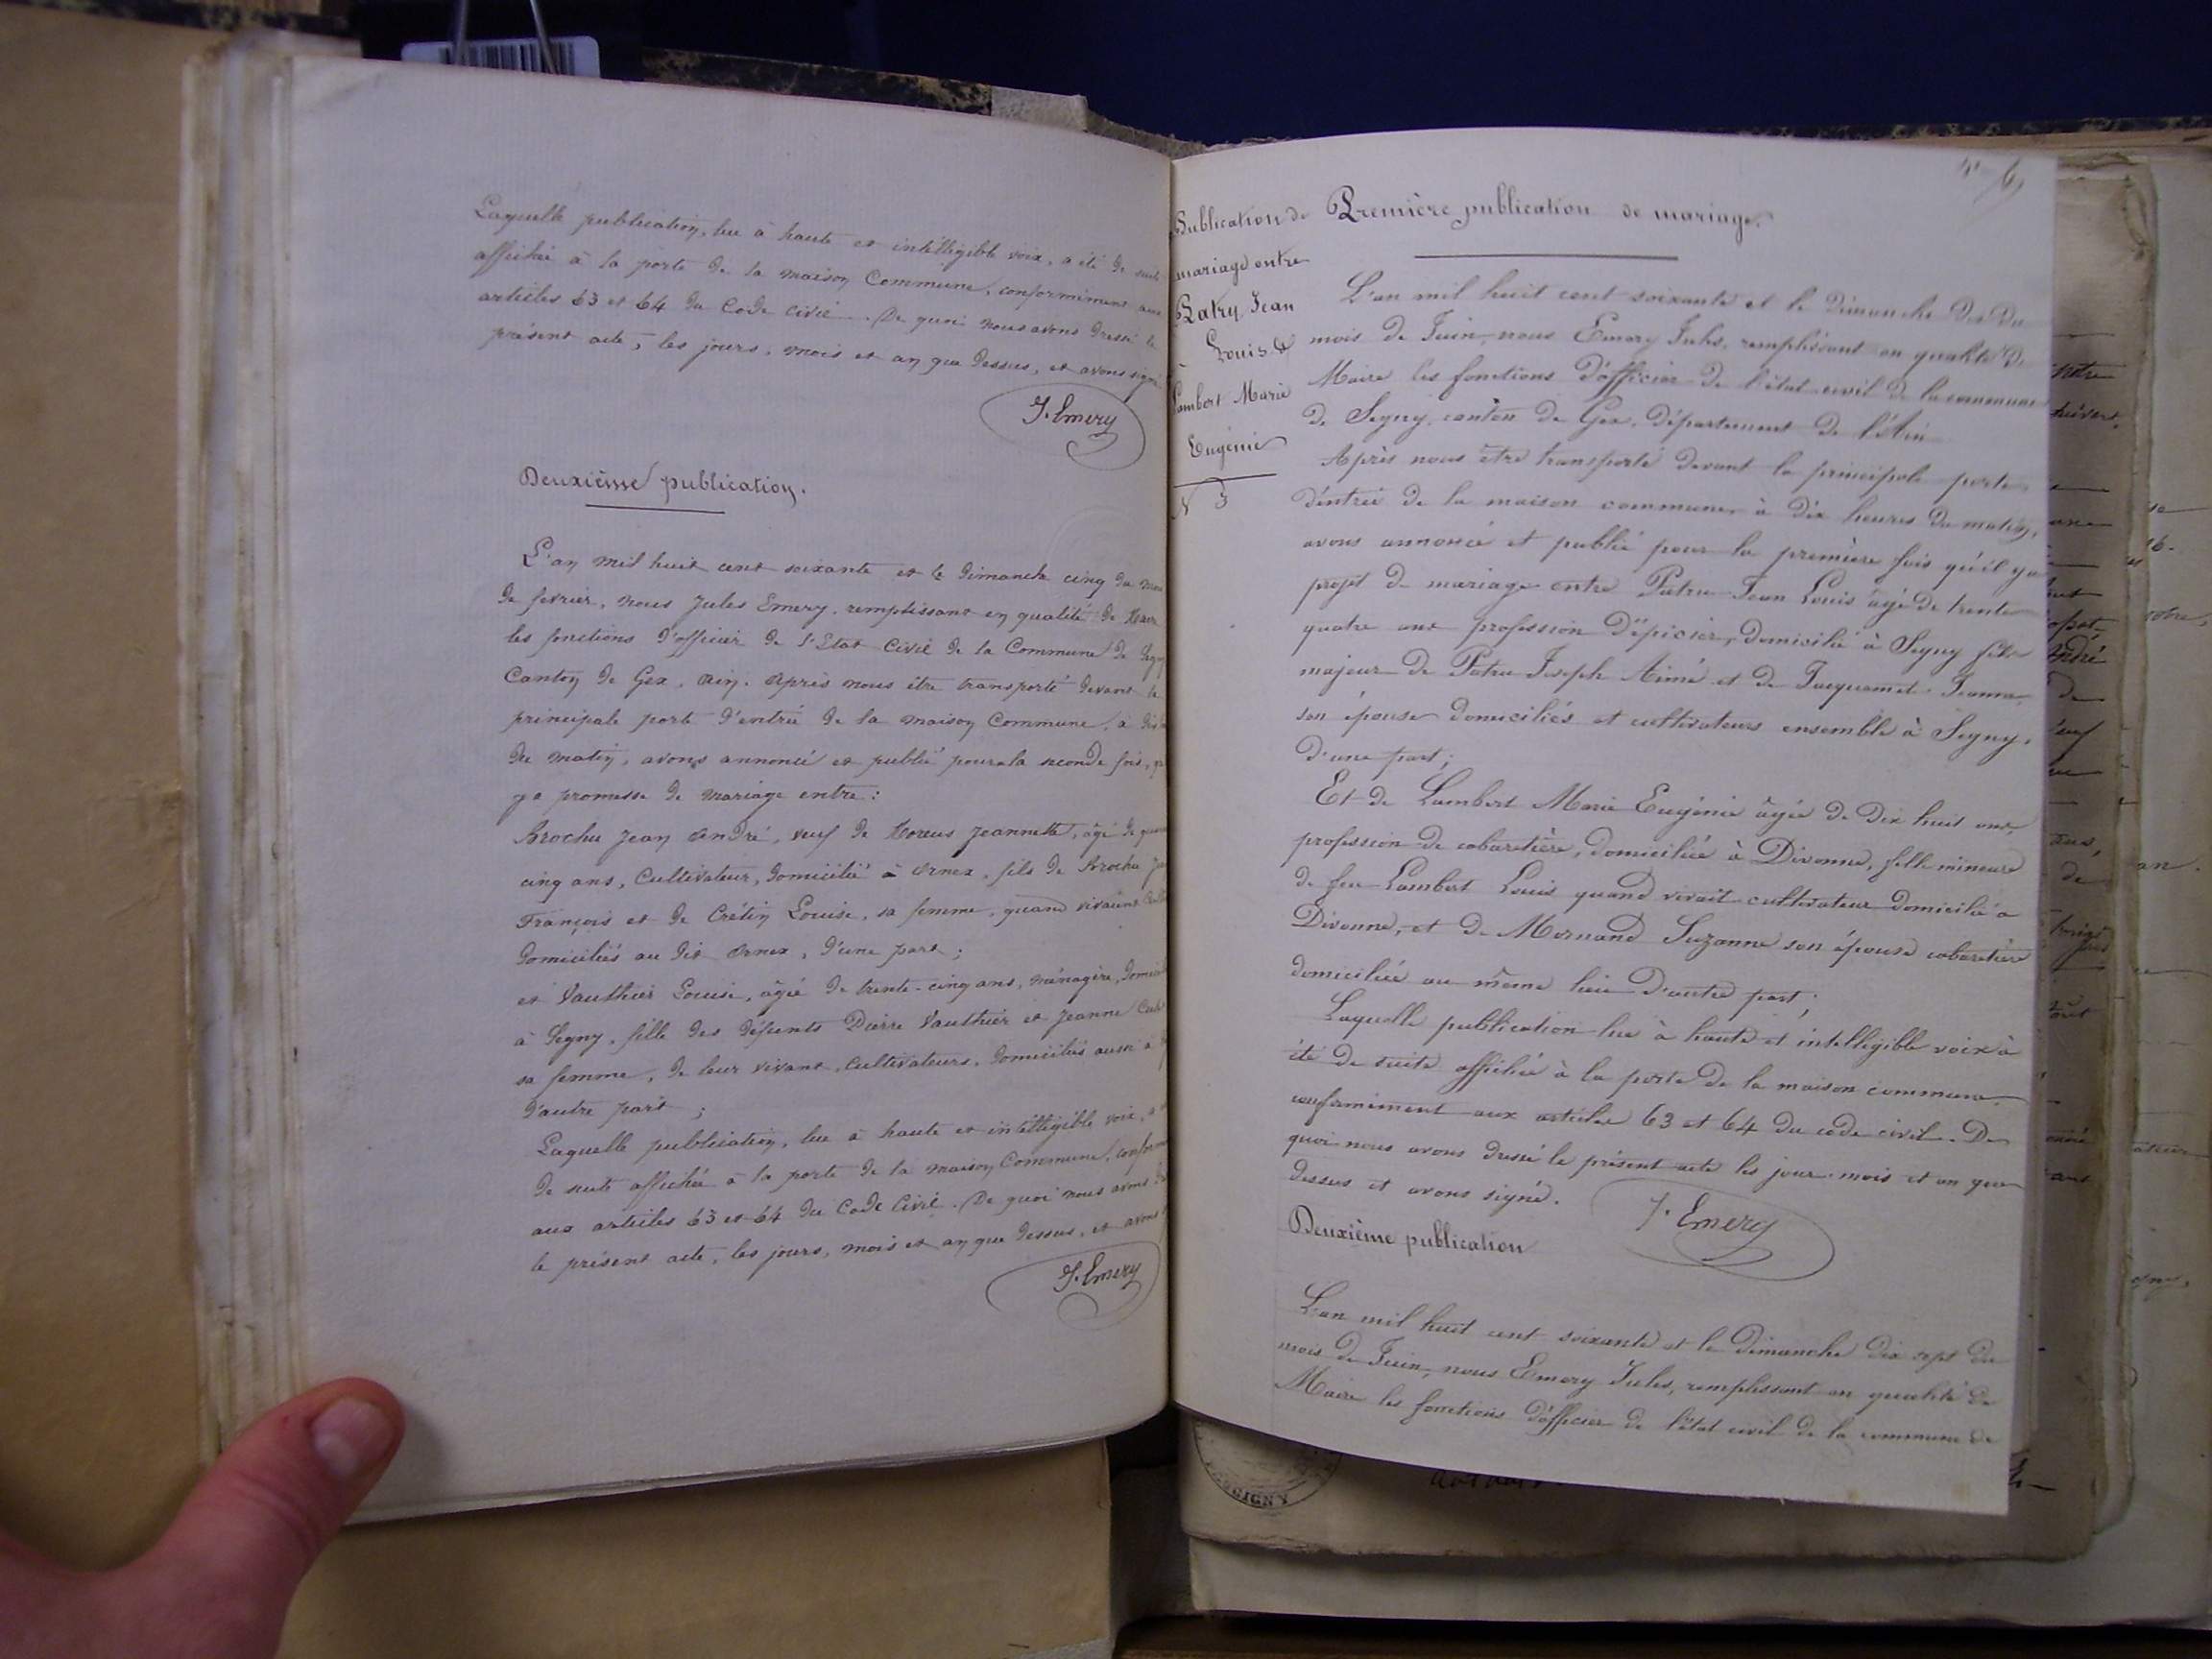 Laquelle publication, lue à haute et intelligible voix, a été de suite
affichée à la porte de la maison Commune, conformément aux
articles 63 et 64 du Code Civil. De quoi nous avons dressé le
présent acte, les jours, mois et an que dessus, et avons signé
J. Emery
Deuxième publication.
L'an mil huit cent soixante et le dimanche cinq du mois
de fevrier, nous Jules Emery, remplissant en qualité de Maire
les fonctions d'officier de l'Etat Civil de la Commune de Segny
Canton de Gex, Ain. Après nous être transporté devant la
principale porte d'entrée de la maison Commune, à dix
du matin, avons annoncé et publié pour la seconde fois, qu
y a promesse de mariage entre :
Brochu Jean André, veuf de Jeannette, âgé de
cinq ans, Cultivateur, domicilié à Ornex, fils de Brochu
François et de Crétin Louise, sa femme, quand vivaient
domiciliés au dit Ornex, d'une part ;
et Vauthier Louise, âgée de trente-cinq ans, ménagère,
à Segny, fille des défunts Pierre Vauthier et Jeanne
sa femme, de leur vivant, Cultivateurs, domiciliés aussi à
d'autre part ;
Laquelle publication, lue à haute et intelligible voix, a
de suite affichée à la porte de la maison Commune,
aux articles 63 et 64 du Code Civil. De quoi nous avons
le présent acte, les jours, mois et an que dessus, et avons
J. Emery
Publication de
mariage entre
Patry Jean
Louis &
Lambert Marie
Eugénie
N 3
Première publication de mariage.
L'an mil huit cent soixante et le dimanche dix du
mois de Juin, nous Emery Jules, remplissant en qualité de
Maire les fonctions d'officier de l'état civil de la commune
de Segny, canton de Gex, département de l'Ain
Après nous être transporté devant la principale porte
d'entrée de la maison commune à dix heures du matin,
avons annoncé et publié pour la première fois qu'il y a
projet de mariage entre Patru Jean Louis âgé de trente
quatre ans profession d'épicier, domicilié à Segny fils
majeur de Patru Joseph Aimé et de Jacquemet Jeanne
son épouse domiciliés et cultivateurs ensemble à Segny,
d'une part ;
Et de Lambert Marie Eugénie âgée de dix huit ans,
profession de cabaretière, domiciliée à Divonne, fille mineure
de feu Lambert Louis quand vivait cultivateur domicilié à
Divonne, et de Mornand Suzanne son épouse cabaretière
domiciliée au même lieu d'autre part ;
Laquelle publication lue à haute et intelligible voix à
été de suite affichée à la porte de la maison commune
conformément aux articles 63 et 64 du code civil. De
quoi nous avons dressé le présent acte les jour mois et an que
dessus et avons signé.
J. Emery
Deuxième publication
L'an mil huit cent soixante et le dimanche dix sept du
mois de Juin, nous Emery Jules, remplissant en qualité de
Maire les fonctions d'officier de l'état civil de la commune de